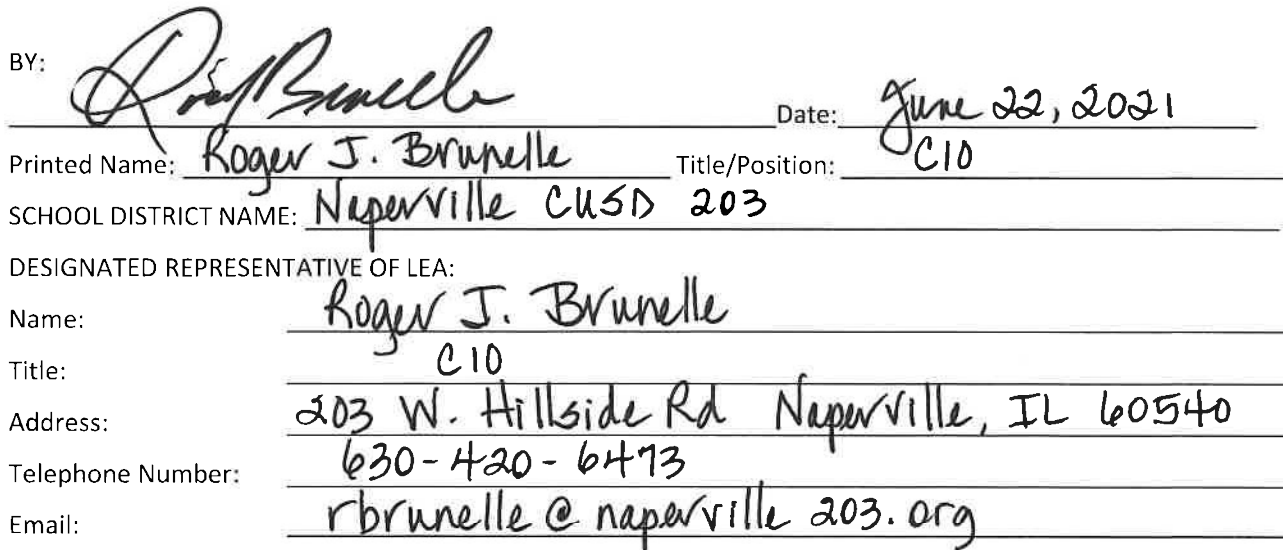 BY: Roger Brunelle
Date: June 22, 2021
Printed Name: Roger J. Brunelle Title/Position: CIO
SCHOOL DISTRICT NAME: Naperville CUSD 203
DESIGNATED REPRESENTATIVE OF LEA:
Name: Roger J. Brunelle
Title: CIO
Address: 203 W. Hillside Rd Naperville, IL 60540
Telephone Number: 630-420-6473
Email: rbrunelle@naperville203.org